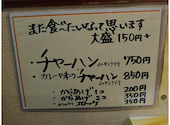 また食べたいなって思います
大盛150円+
・チャーハン 750円
・カレー味のチャーハン 850円
からあげ1コ 200円
からあげ2コ 350円
コロッケ 350円